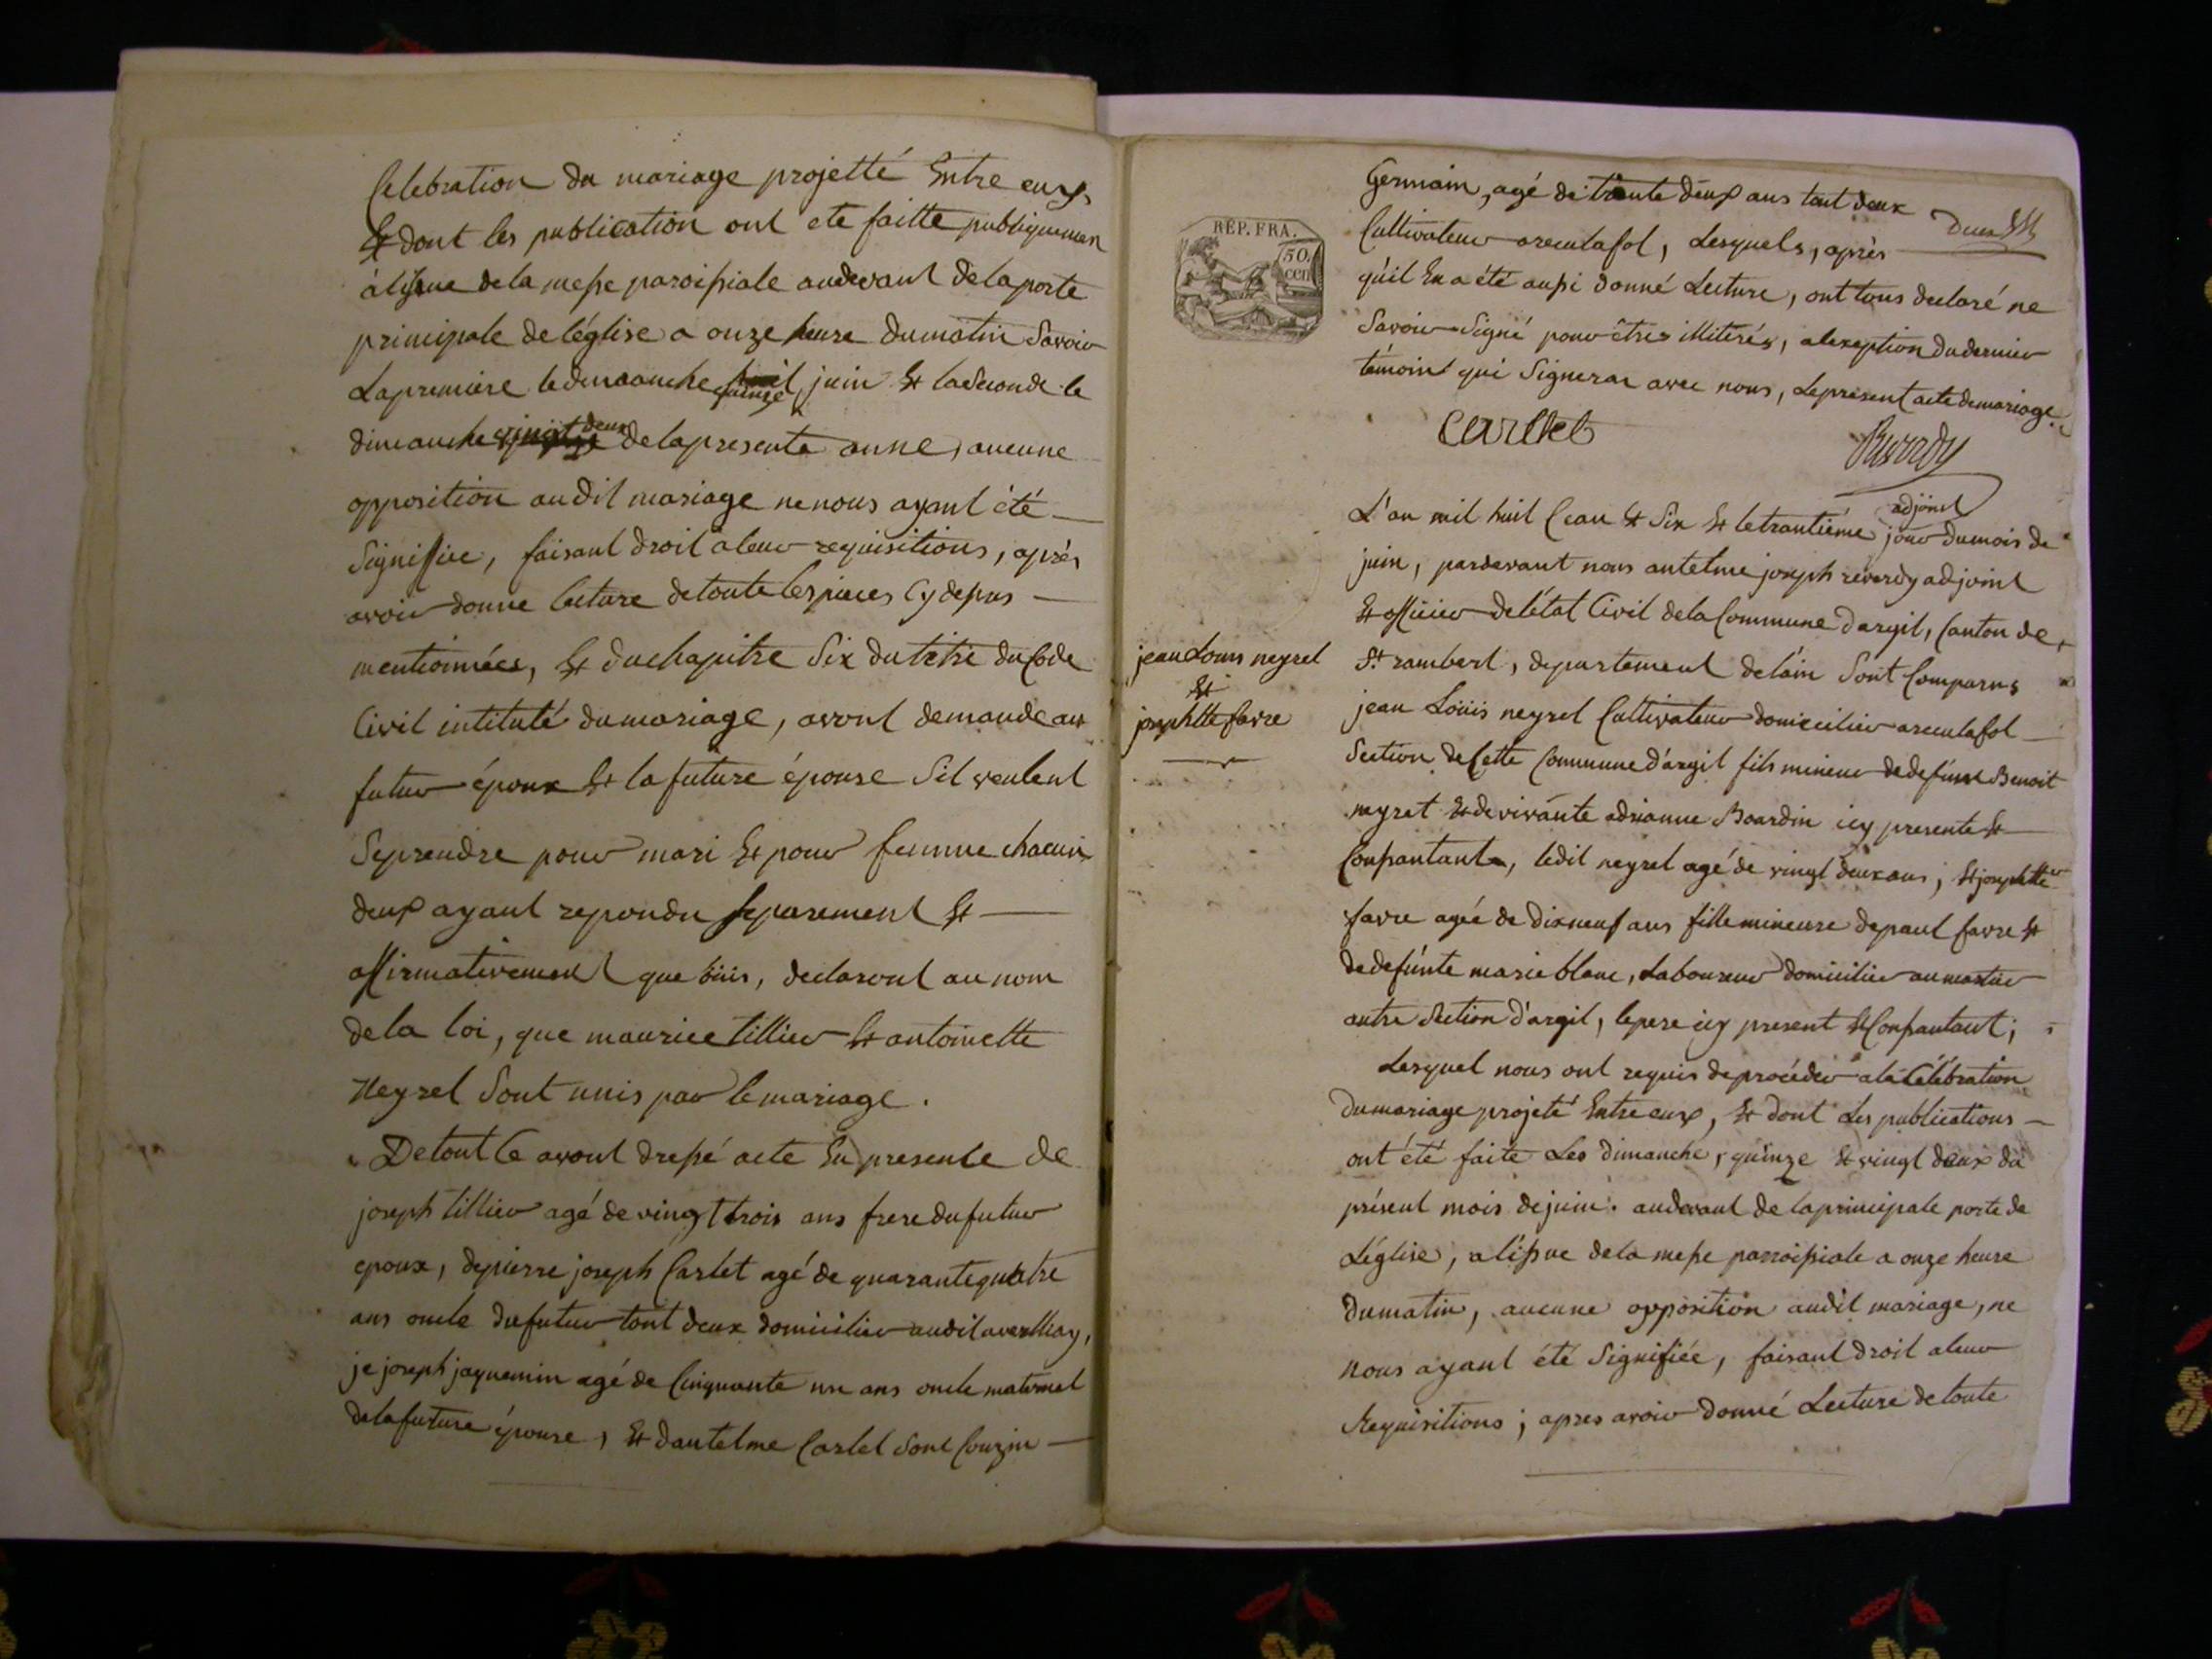 Celebration du mariage projetté Entre eux,
Et dont les publication ont ete faitte publiquemen
à lissue de la messe paroissiale audevant de la porte
principale de léglise a onze heure du matin Savoir
La premiere le dimanche quinze juin Et la Seconde le
dimanche vingt deux de la presente anne, aucune
opposition audit mariage ne nous ayant été
Signifiée, faisant droit a leur requisitions, après
avoir donne lecture de toute les pieces Cy dessus
mentionnées, Et du chapitre Six du titre du Code
Civil intitulé du mariage, avont demande au
futur époux Et la future épouse Sil veulent
Se prendre pour mari Et pour femme chacun
deux ayant repondu separement Et
affirmativement que oüis, declaront au nom
de la loi, que maurice tillier Et antoinette
Neyret Sont unis par le mariage.
De tout Ce avont dressé acte En presence de
joseph tillier agé de vingt trois ans frere du futur
epoux, de pierre joseph Carlet agé de quarante quatre
ans oncle du futur tout deux domicilier audit
je joseph jaquemin agé de Cinquante un ans oncle maternel
de la future épouse, Et dantelme Carlet Sont Couzin
Germain, agé de trente deux ans tout deux
Cultivateur arecculafol, Lesquels, après
qu'il En a été aussi donné Lecture, ont tous declaré ne
Savoir Signé pour êtres illiterés, alexeption du dernier
témoint qui Signerar avec nous, Le present acte de mariage.
Carllet
Reverdy
adjoint
REP. FRA.
50 cen
L'an mil huit Cean Et Six Et le trantiéme jour du mois de
juin, pardevant nous antelme joseph reverdy adjoint
Et officier de létat Civil de la Commune dargit, Canton de
St. rambert, departement de lain Sont Comparus
jean Louis neyret
Et
josephtte favre
jean Loüis neyret Cultivateur domicilier arecculafol
Section de Cette Commune dargit fils mineur de defunt Benoit
neyret Et de vivante adrianne Bourdin icy presente Et
Consantante, ledit neyret agé de vingt deux ans, Et josephtte
favre agée de dixneuf ans fille mineure de paul favre Et
de defúnte marie blanc, Laboureur domicilier au
autre Section d'argit, le pere icy present Et Consantant;
Lesquel nous ont requis de procéder a la Célébration
du mariage projeté Entre eux, Et dont Les publications
ont été faite Les dimanche, quinze Et vingt deux du
présent mois de juin. audevant de la principale porte de
L'église, a lissue de la messe parroissiale a onze heure
du matin, aucune opposition audit mariage, ne
nous ayant été Signifiée, faisant droit a leur
Requisitions; apres avoir donné Lecture de toute